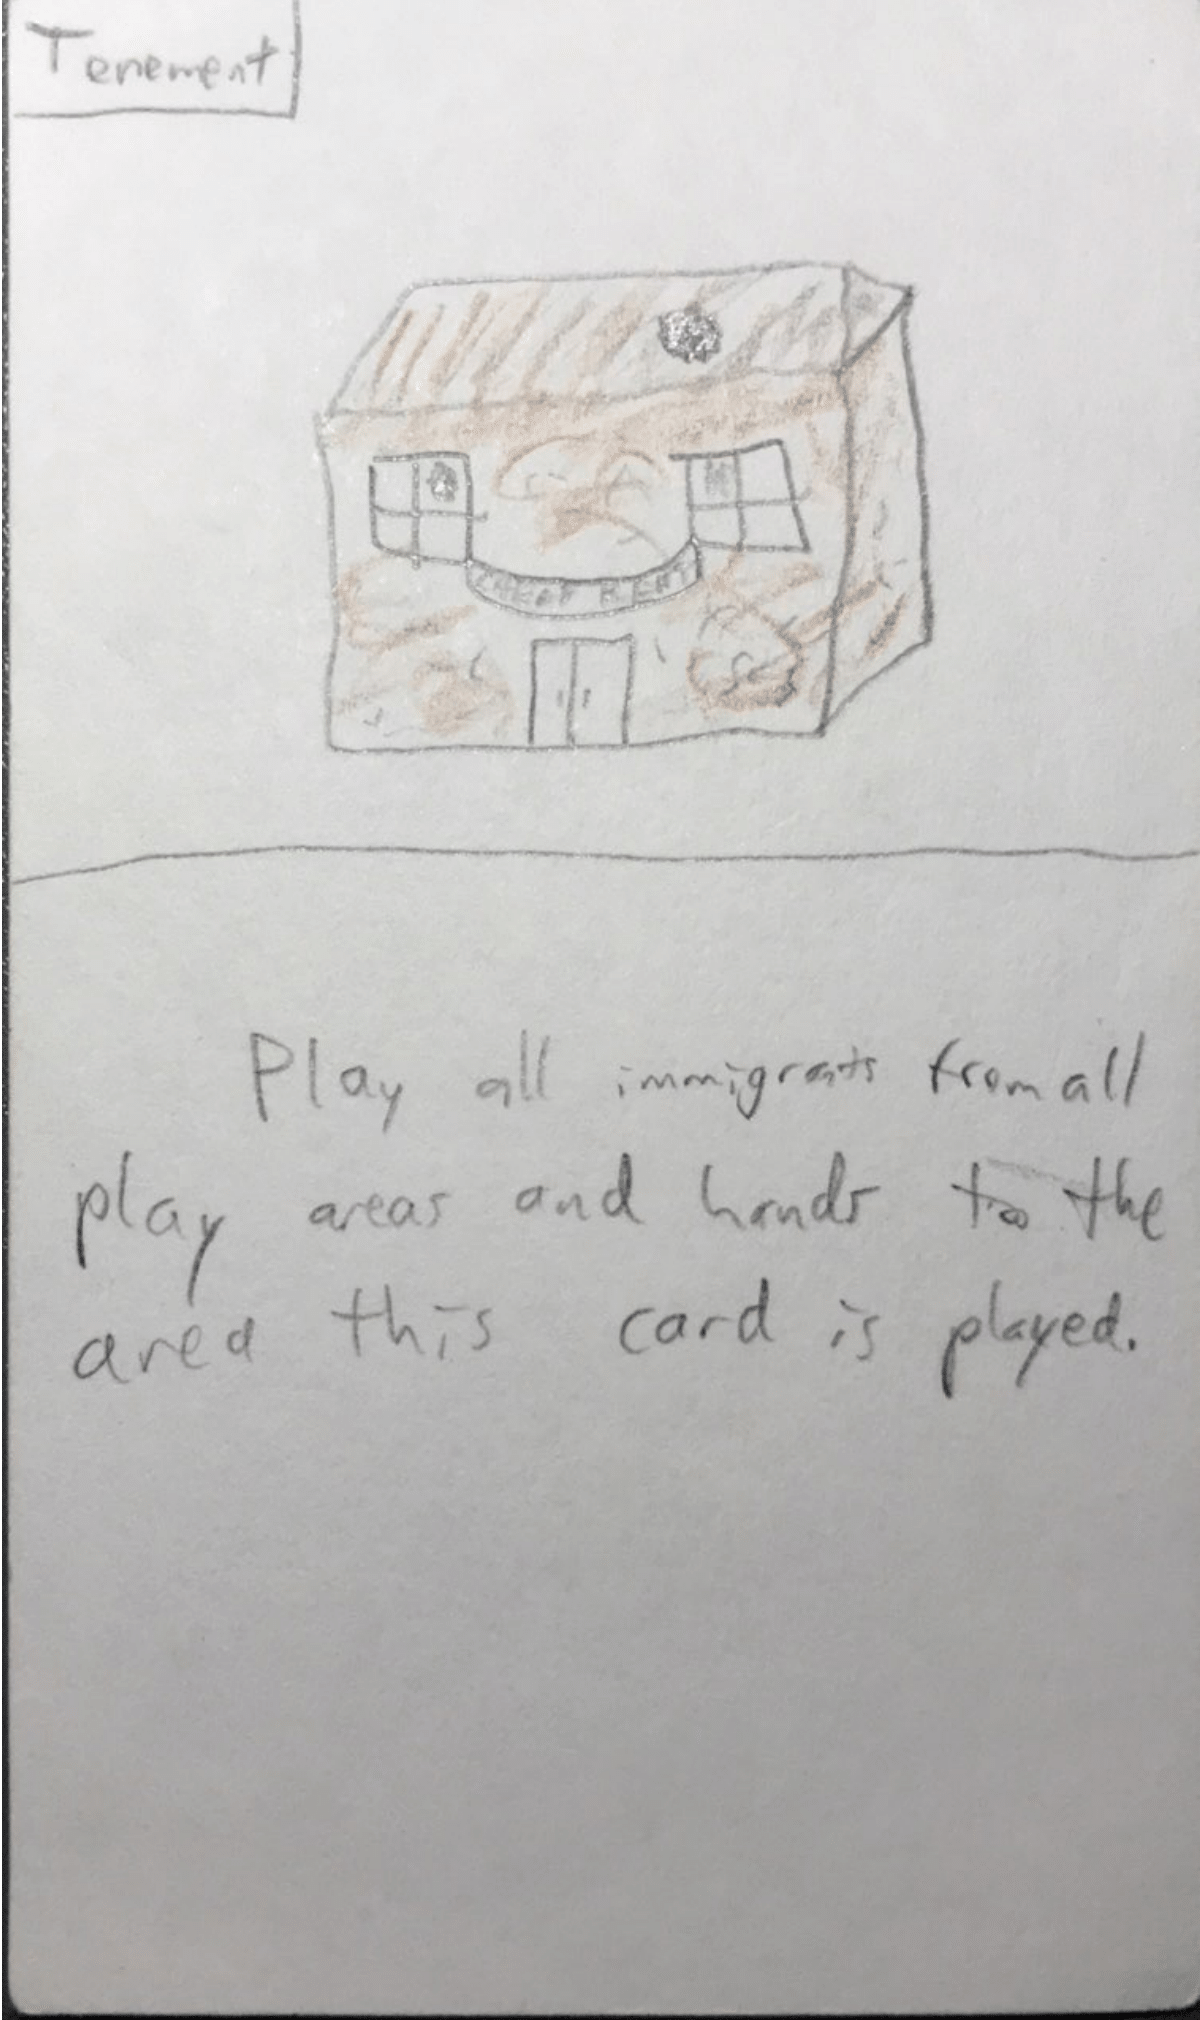 Tenement
CHEAP RENT
Play all immigrants from all
play areas and hands to the
area this card is played.